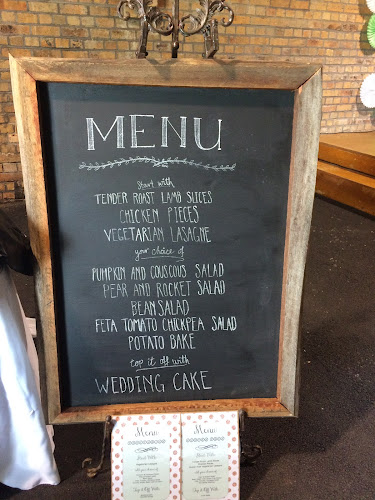 MENU
Start with
TENDER ROAST LAMB SLICES
CHICKEN PIECES
VEGETARIAN LASAGNE
your choice of
PUMPKIN AND COUSCOUS SALAD
PEAR AND ROCKET SALAD
BEAN SALAD
FETA TOMATO CHICKPEA SALAD
POTATO BAKE
top it off with
WEDDING CAKE
Menu
Menu